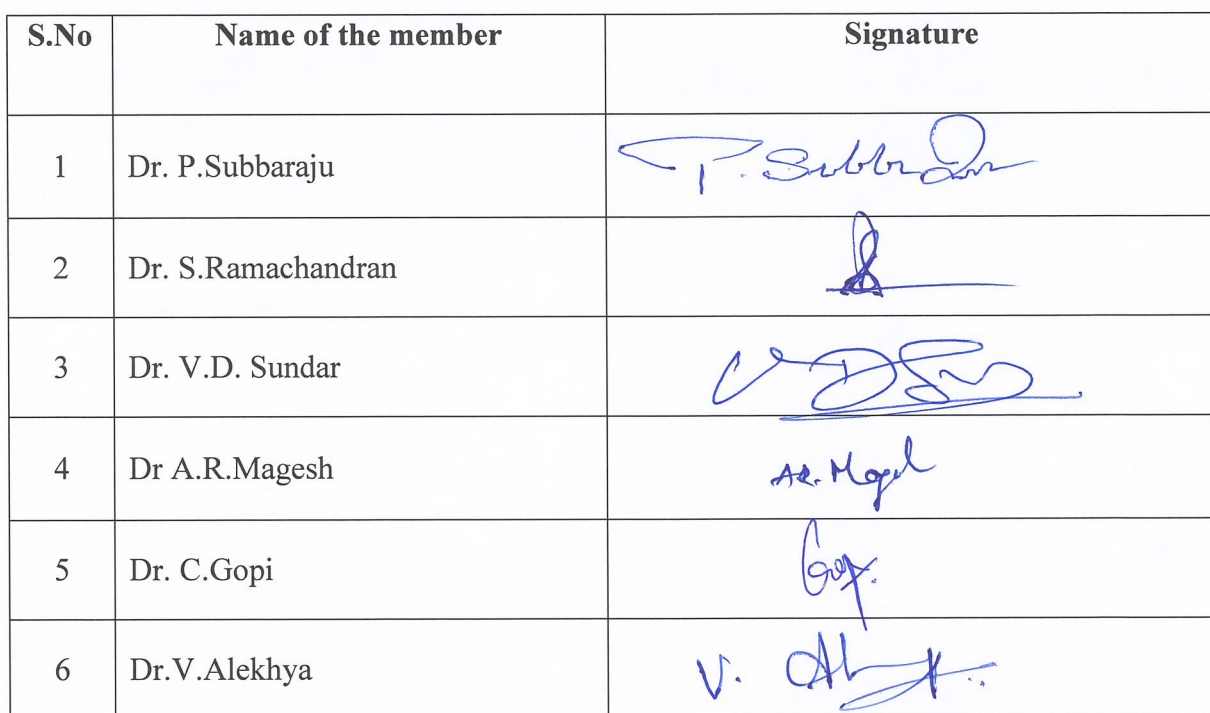 S.No Name of the member Signature
1 Dr. P.Subbaraju P. Subba
2 Dr. S.Ramachandran
3 Dr. V.D. Sundar V D
4 Dr A.R.Magesh AR. Magesh
5 Dr. C.Gopi Gopi
6 Dr.V.Alekhya V.